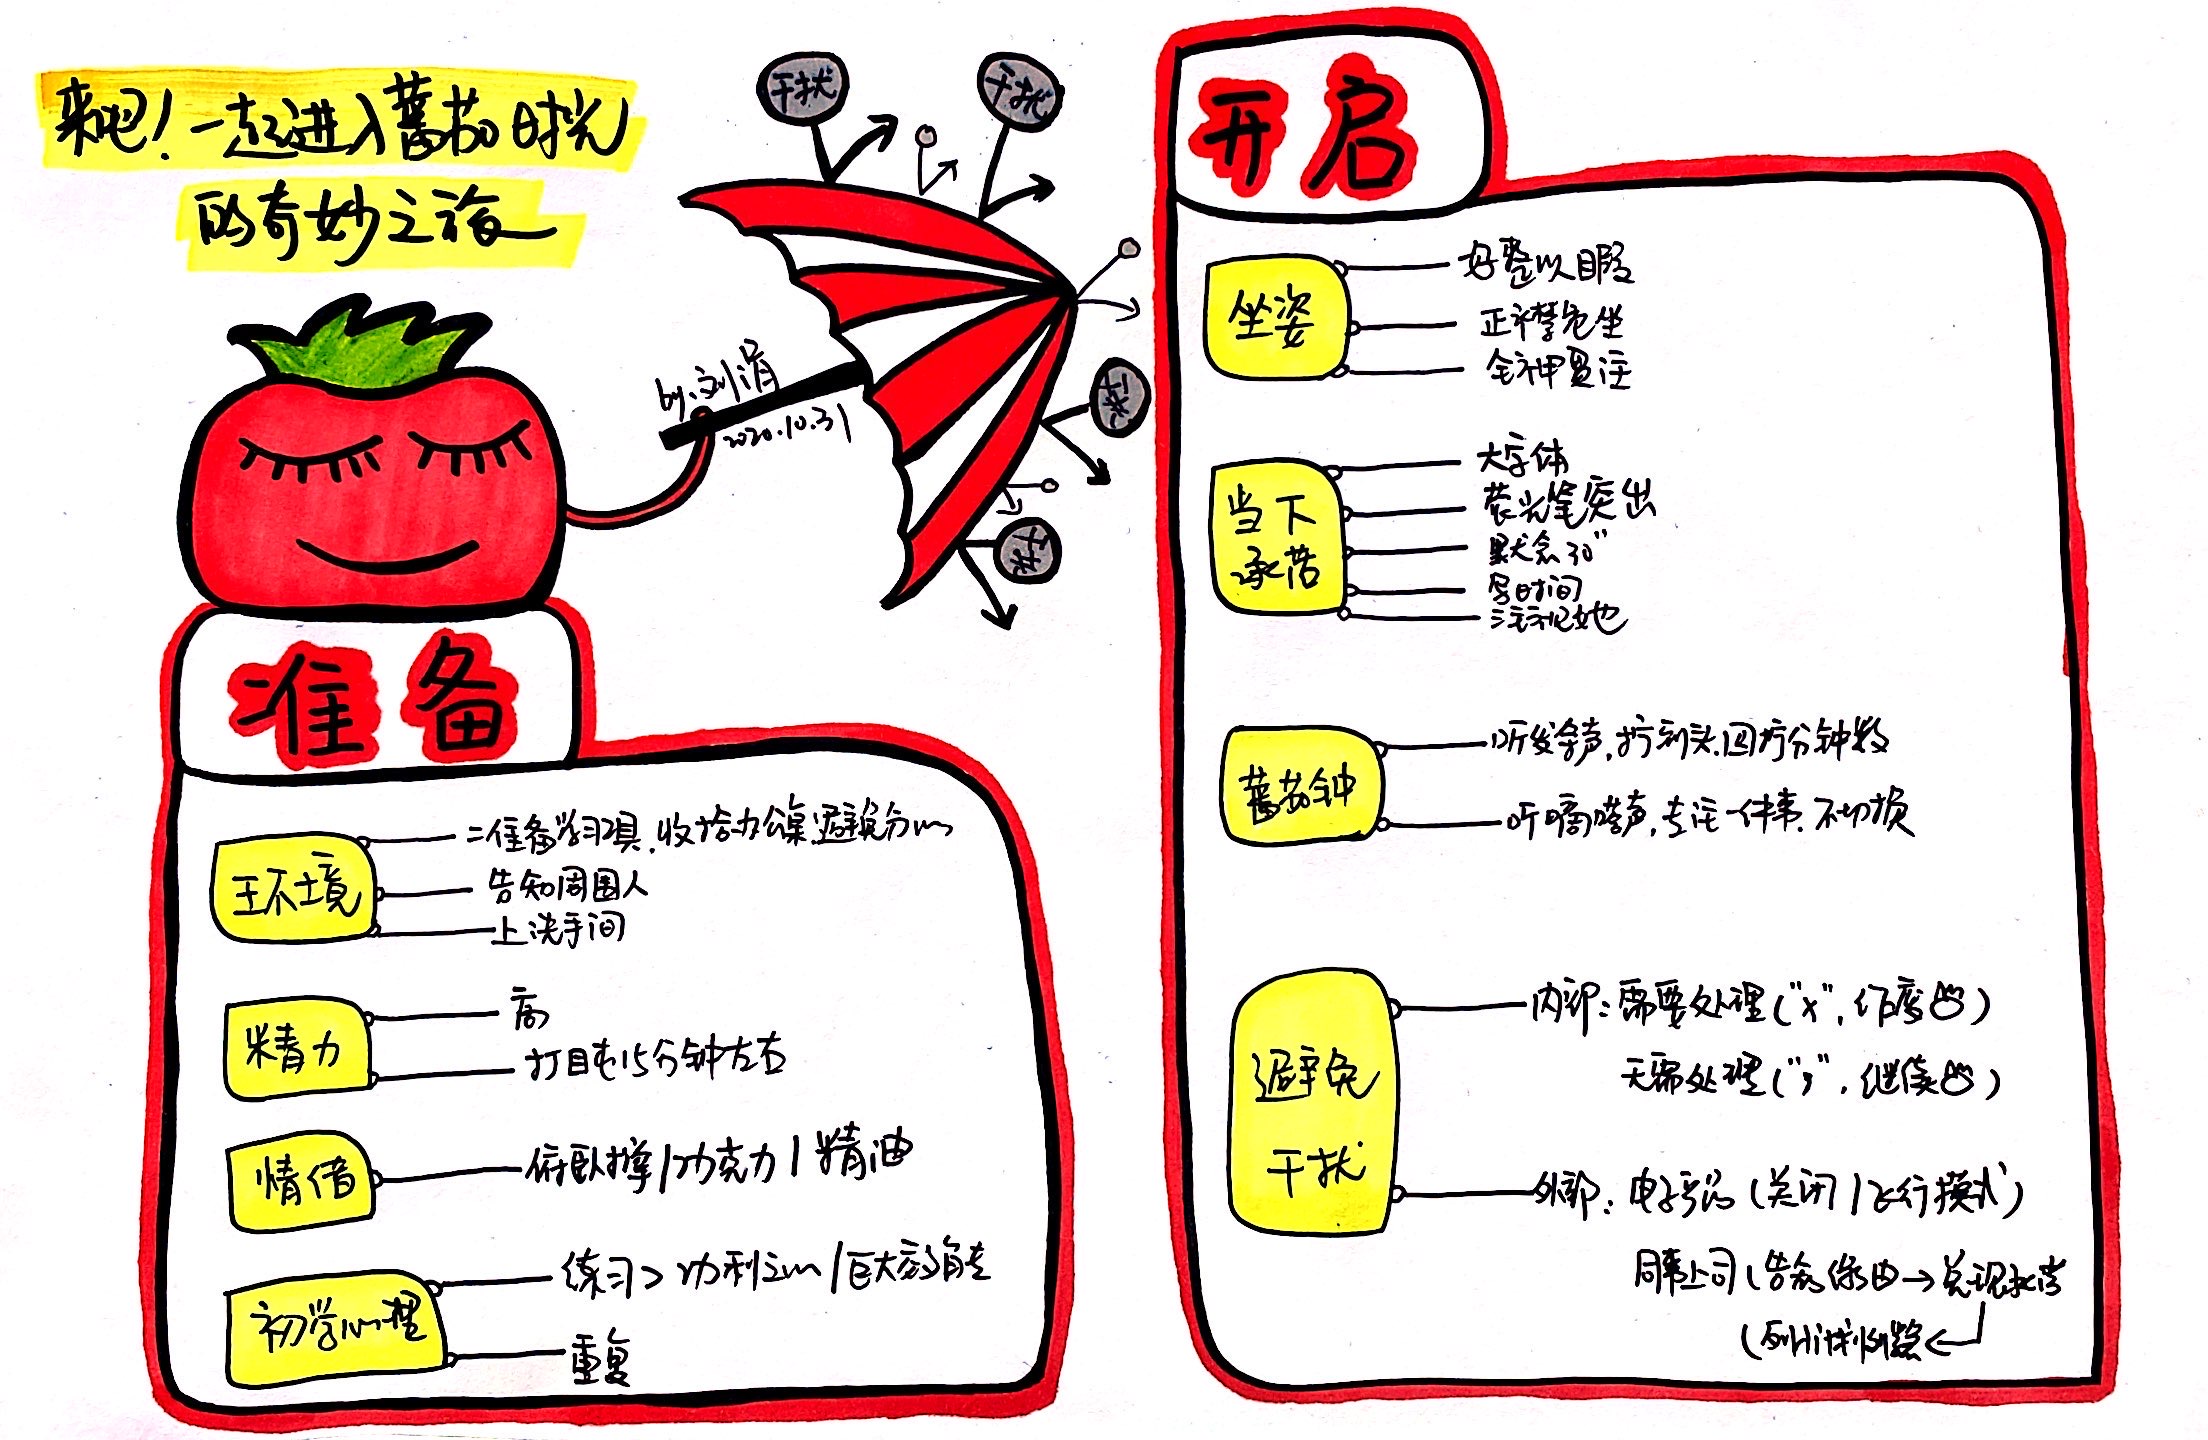 来吧！一起进入蕃茄时光
的奇妙之旅
干扰
干扰
干扰
干扰
by.刘涓
2020.10.31
准备
环境
准备学习工具,收拾办公桌,避免分心
告知周围人
上洗手间
精力
高
打盹15分钟左右
情绪
俯卧撑/巧克力/精油
初学心理
练习>功利心/巨大效能
重复
开启
坐姿
好整以暇
正襟危坐
全神贯注
当下
承诺
大字体
荧光笔突出
默念30"
写时间
注视她
蕃茄钟
听发条声,拧到头,回拧分钟数
听嘀嗒声,专注一件事,不切换
避免
干扰
内部:需要处理("x",作废)
无需处理(",",继续)
外部:电子产品(关闭/飞行模式)
同事上司(告知缘由→兑现承诺